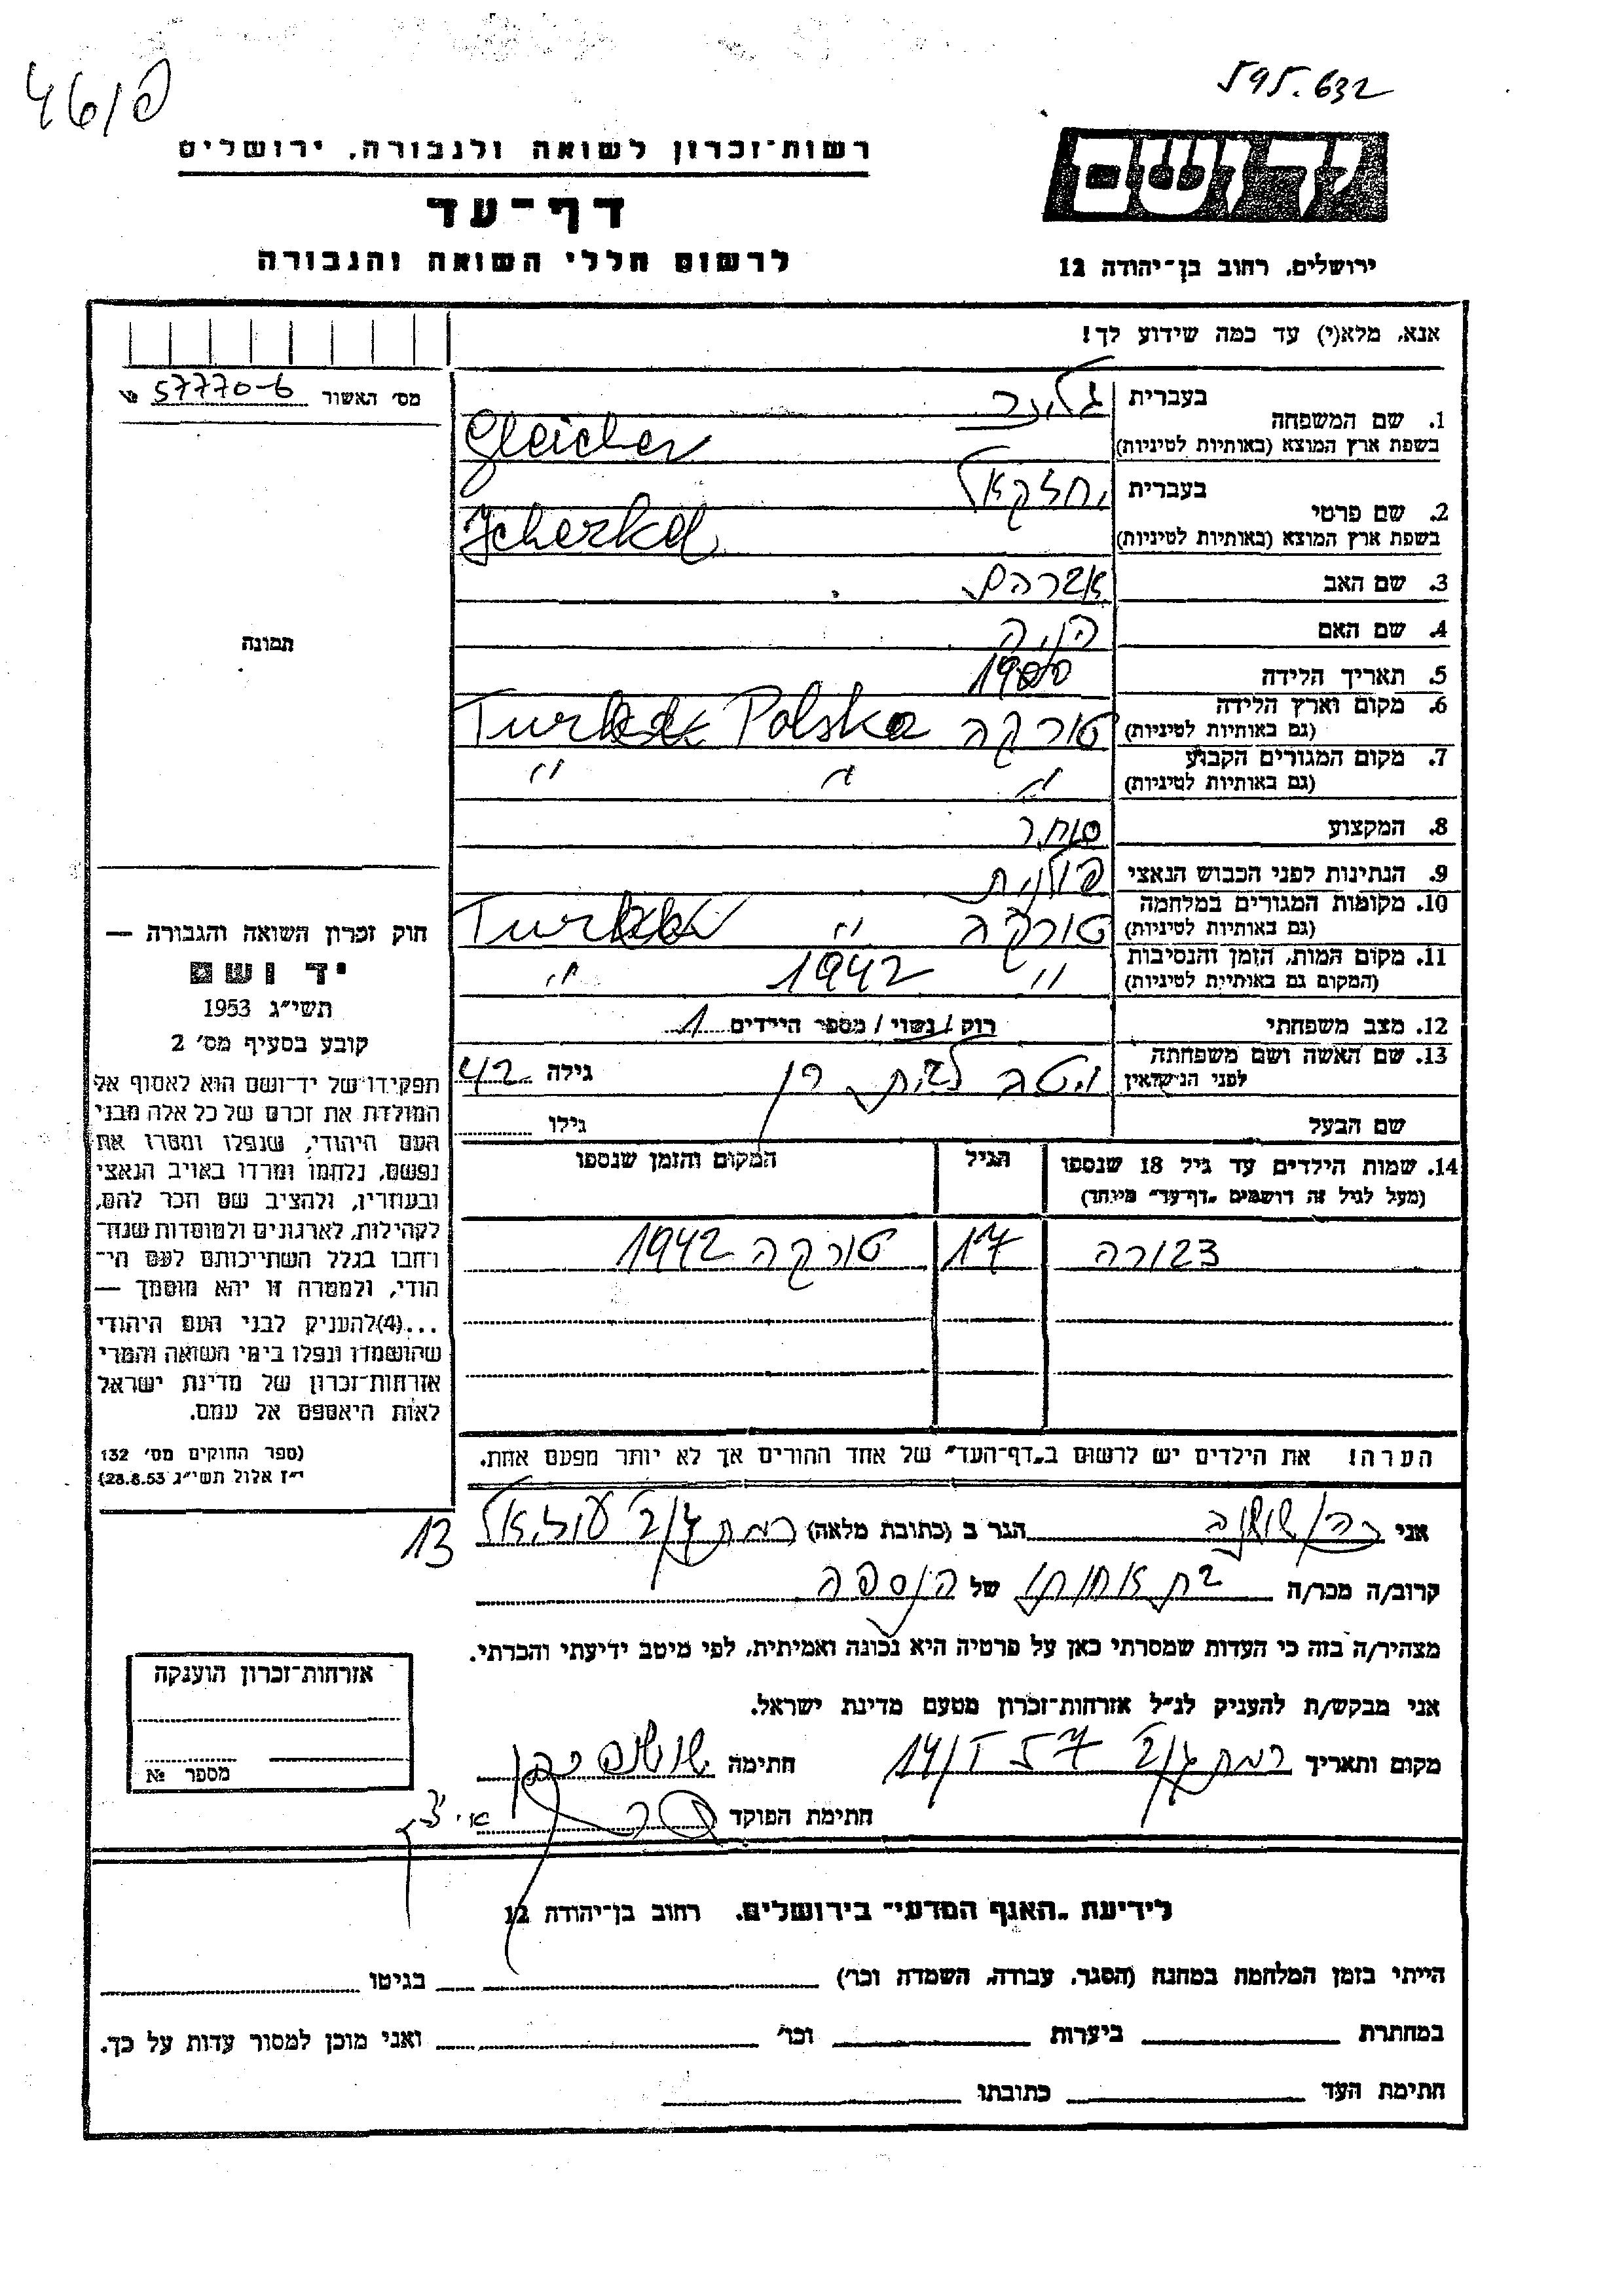 46/פ
595.632
רשות־זכרון לשואה ולגבורה, ירושלים
דף־עד
לרשום חללי השואה והגבורה
יד ושם
ירושלים, רחוב בן־יהודה 12
אנא, מלא(י) עד כמה שידוע לך!
מס׳ האשור 57770-б №
1. שם המשפחה
בעברית
בשפת ארץ המוצא (באותיות לטיניות) Gleicher
2. שם פרטי
בעברית יחזקאל
בשפת ארץ המוצא (באותיות לטיניות)
3. שם האב אברהם
4. שם האם
5. תאריך הלידה 1900
6. מקום וארץ הלידה
(גם באותיות לטיניות) טורקה Turka Polska
7. מקום המגורים הקבוע
(גם באותיות לטיניות) " " "
8. המקצוע סוחר
9. הנתינות לפני הכבוש הנאצי פולנית
10. מקומות המגורים במלחמה
(גם באותיות לטיניות) טורקה " Turka
11. מקום המות, הזמן והנסיבות
(המקום גם באותיות לטיניות) " 1942 "
12. מצב משפחתי רוק / נשוי / מספר הילדים 1
13. שם האשה ושם משפחתה
לפני הנישואין לבית גילה 42
שם הבעל גילו
תמונה
חוק זכרון השואה והגבורה —
יד ושם
תשי״ג 1953
קובע בסעיף מס׳ 2
תפקידו של יד־ושם הוא לאסוף אל
המולדת את זכרם של כל אלה מבני
העם היהודי, שנפלו ומסרו את
נפשם, נלחמו ומרדו באויב הנאצי
ובעוזריו, ולהציב שם וזכר להם,
לקהילות, לארגונים ולמוסדות שנח־
רבו בגלל השתייכותם לעם הי־
הודי, ולמטרה זו יהא מוסמך —
...(4)להעניק לבני העם היהודי
שהושמדו ונפלו בימי השואה והמרי
אזרחות־זכרון של מדינת ישראל
לאות היאספם אל עמם.
(ספר החוקים מס׳ 132
י״ז אלול תשי״ג 28.8.53)
14. שמות הילדים עד גיל 18 שנספו
(מעל לגיל זה רושמים „דף־עד״ מיוחד)
הגיל
המקום והזמן שנספו
דבורה 17 טורקה 1942
הערה! את הילדים יש לרשום ב„דף־העד״ של אחד ההורים אך לא יותר מפעם אחת.
אני הגר ב (כתובת מלאה) רמת גן עוזיאל 13
קרוב/ה מכר/ה בת אחותו של הנספה
מצהיר/ה בזה כי העדות שמסרתי כאן על פרטיה היא נכונה ואמיתית, לפי מיטב ידיעתי והכרתי.
אני מבקש/ת להעניק לנ״ל אזרחות־זכרון מטעם מדינת ישראל.
מקום ותאריך רמת גן 14/I 57 חתימה
חתימת הפוקד
אזרחות־זכרון הוענקה
מספר №
לידיעת „האגף המדעי״ בירושלים, רחוב בן־יהודה 12
הייתי בזמן המלחמה במחנה (הסגר, עבודה, השמדה וכו׳) בגיטו
במחתרת ביערות וכו׳ ואני מוכן למסור עדות על כך.
חתימת העד כתובתו